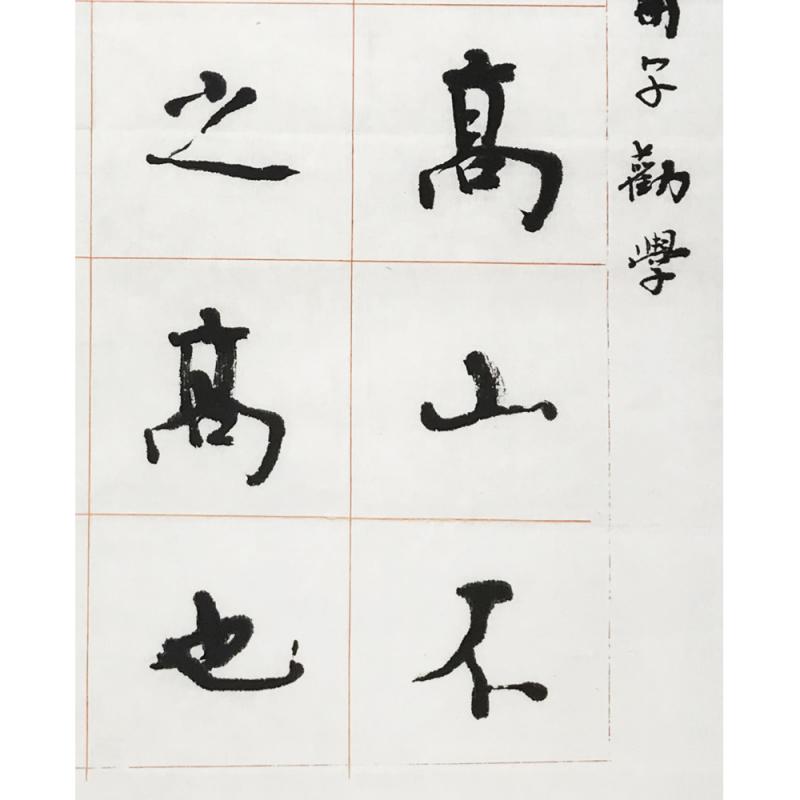 荀子勸學
高山不
之高也